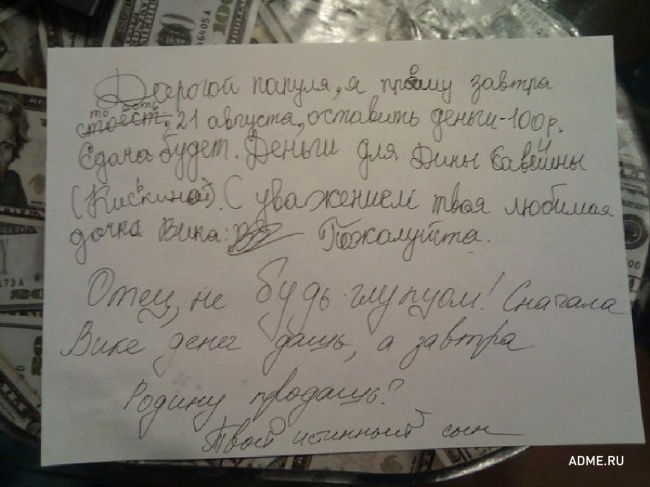 Дорогой папуля, я прошу завтра
то есть
21 августа, оставить деньги-100р.
Сдача будет. Деньги для Дины
(Кискиной). С уважением твоя любимая
дочка Вика. Пожалуйста.
Отец, не будь глупцом! Сначала
Вике денег дашь, а завтра
Родину продашь?
Твой истинный сын
ADME.RU